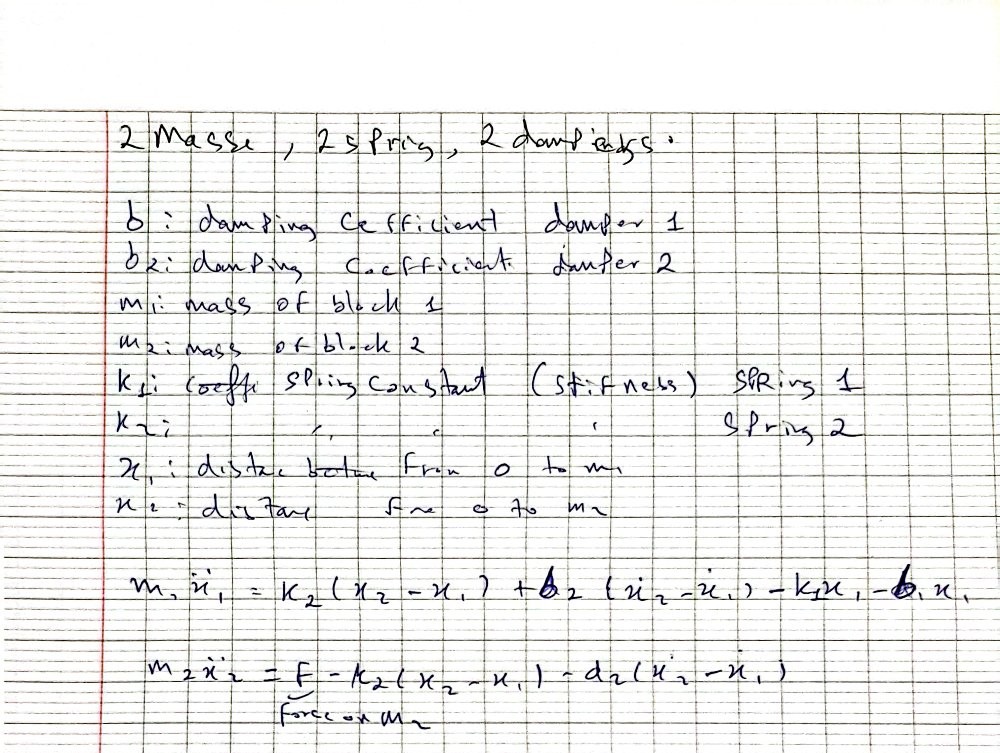 2 Masse, 2 spring, 2 dampings.
b: damping Cefficient damper 1
b2: damping Coefficient damper 2
m1: mass of block 1
m2: mass of block 2
K1: coeffi spring constant (stifness) SPRing 1
K2: " " " Spring 2
x1: distac from 0 to m1
x2: distane fro 0 to m2
m, ẍ1 = K2 (x2 - x1) + b2 (ẋ2 - ẋ1) - k1x1 - b1 x1
m2 ẍ2 = F - K2 (x2 - x1) - d2 (ẋ2 - ẋ1)
Force on m2